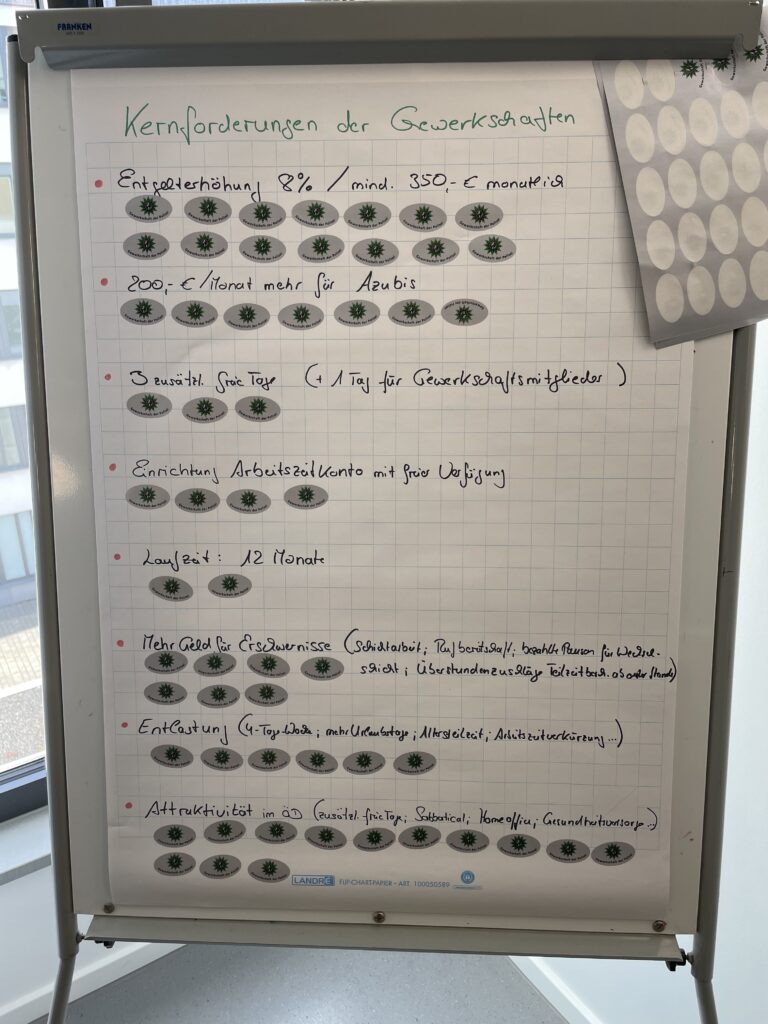 FRANKEN
Kernforderungen der Gewerkschaften
Entgelterhöhung 8% / mind. 350,- € monatlich
200,- €/Monat mehr für Azubis
3 zusätzl. freie Tage (+ 1 Tag für Gewerkschaftsmitglieder)
Einrichtung Arbeitszeitkonto mit freier Verfügung
Laufzeit: 12 Monate
Mehr Geld für Erschwernisse (Schichtarbeit; Rufbereitschaft; bezahlte Pausen für Wechsel-
schicht; Überstundenzuschläge Teilzeitbesch. ab erster Stunde)
Entlastung (4-Tage Woche; mehr Urlaubstage; Altersteilzeit; Arbeitszeitverkürzung...)
Attraktivität im ÖD (zusätzl. freie Tage; Sabbatical; Homeoffice; Gesundheitsvorsorge..)
LANDRÉ FLIP-CHART-PAPIER - ART. 100050589